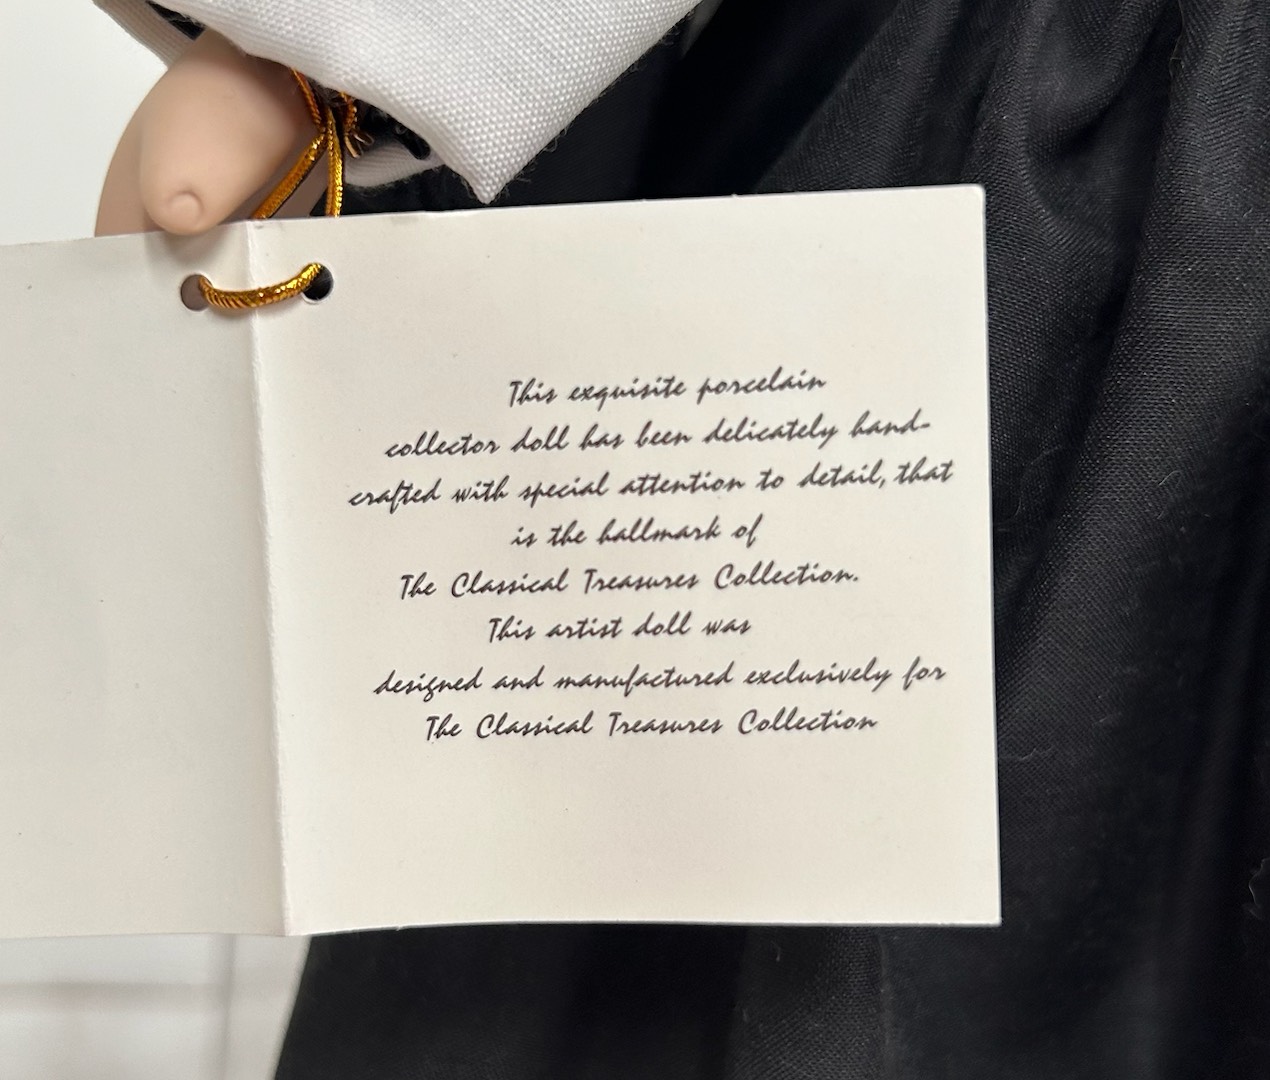 This exquisite porcelain
collector doll has been delicately hand-
crafted with special attention to detail, that
is the hallmark of
The Classical Treasures Collection.
This artist doll was
designed and manufactured exclusively for
The Classical Treasures Collection